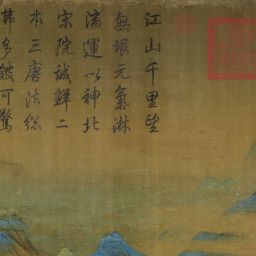 江山千里望
無垠元氣淋
漓運以神北
宋院誠鮮二
本三唐法總
弗多餕可驚